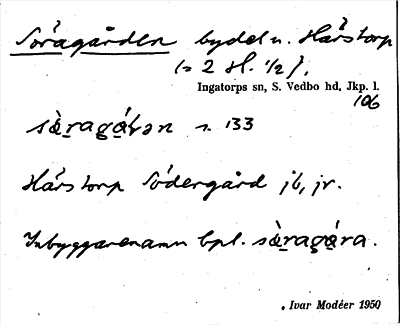 Söragården bydel u. Hårstorp
(= 2 H. 1/2).
Ingatorps sn, S. Vedbo hd, Jkp. l.
106
sò̤ragá̤rən s. 133
Hårstorp Södergård jb, jr.
Inbyggarenamn bpl. sò̤ragá̤ra.
Ivar Modéer 1950